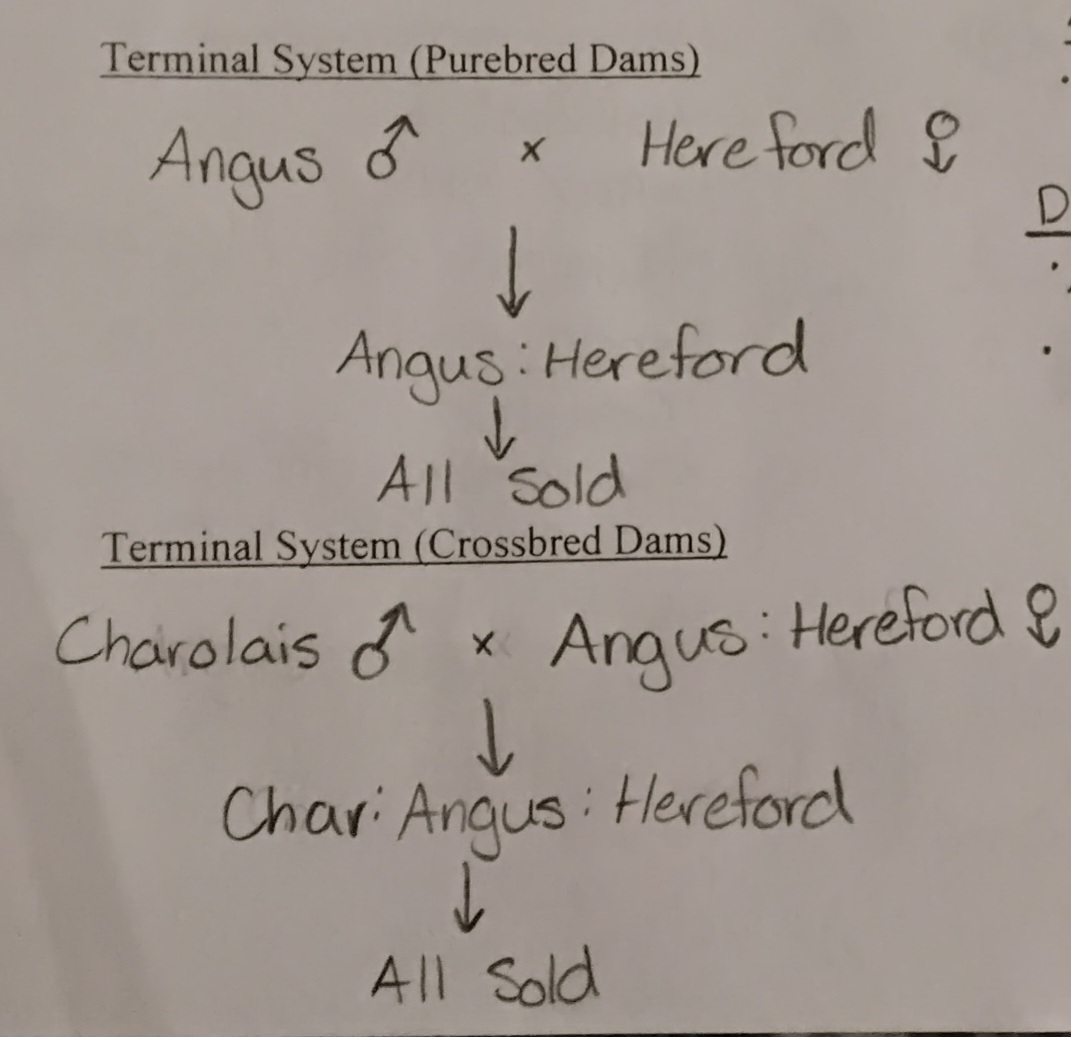 Terminal System (Purebred Dams)
Angus ♂ x Hereford ♀
↓
Angus : Hereford
↓
All Sold
Terminal System (Crossbred Dams)
Charolais ♂ x Angus : Hereford ♀
↓
Char : Angus : Hereford
↓
All Sold
D